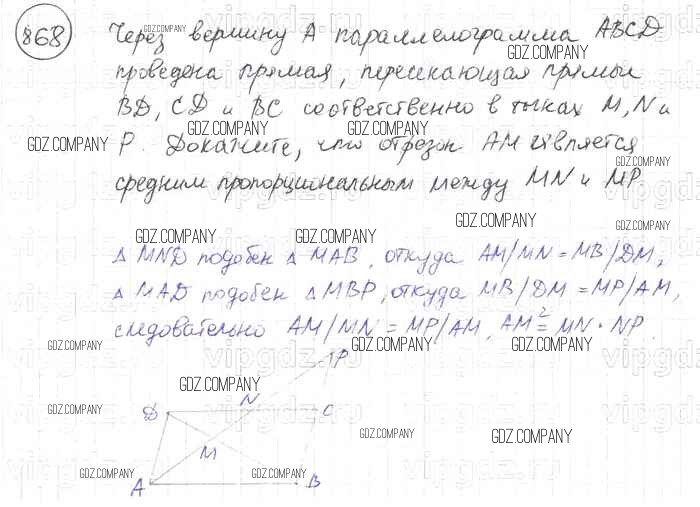 868
Через вершину A параллелограмма ABCD
проведена прямая, пересекающая прямые
BD, CD и BC соответственно в точках M, N и
P. Докажите, что отрезок AM является
средним пропорциональным между MN и MP.
Δ MND подобен Δ MAB, откуда AM/MN = MB/DM,
Δ MAD подобен Δ MBP, откуда MB/DM = MP/AM,
следовательно AM/MN = MP/AM, AM² = MN · NP.
P
D N C
M
A B
GDZ.COMPANY
GDZ.COMPANY
GDZ.COMPANY
GDZ.COMPANY
GDZ.COMPANY
GDZ.COMPANY
GDZ.COMPANY
GDZ.COMPANY
GDZ.COMPANY
GDZ.COMPANY
GDZ.COMPANY
GDZ.COMPANY
GDZ.COMPANY
GDZ.COMPANY
GDZ.COMPANY
GDZ.COMPANY
GDZ.COMPANY
GDZ.COMPANY
GDZ.COMPANY